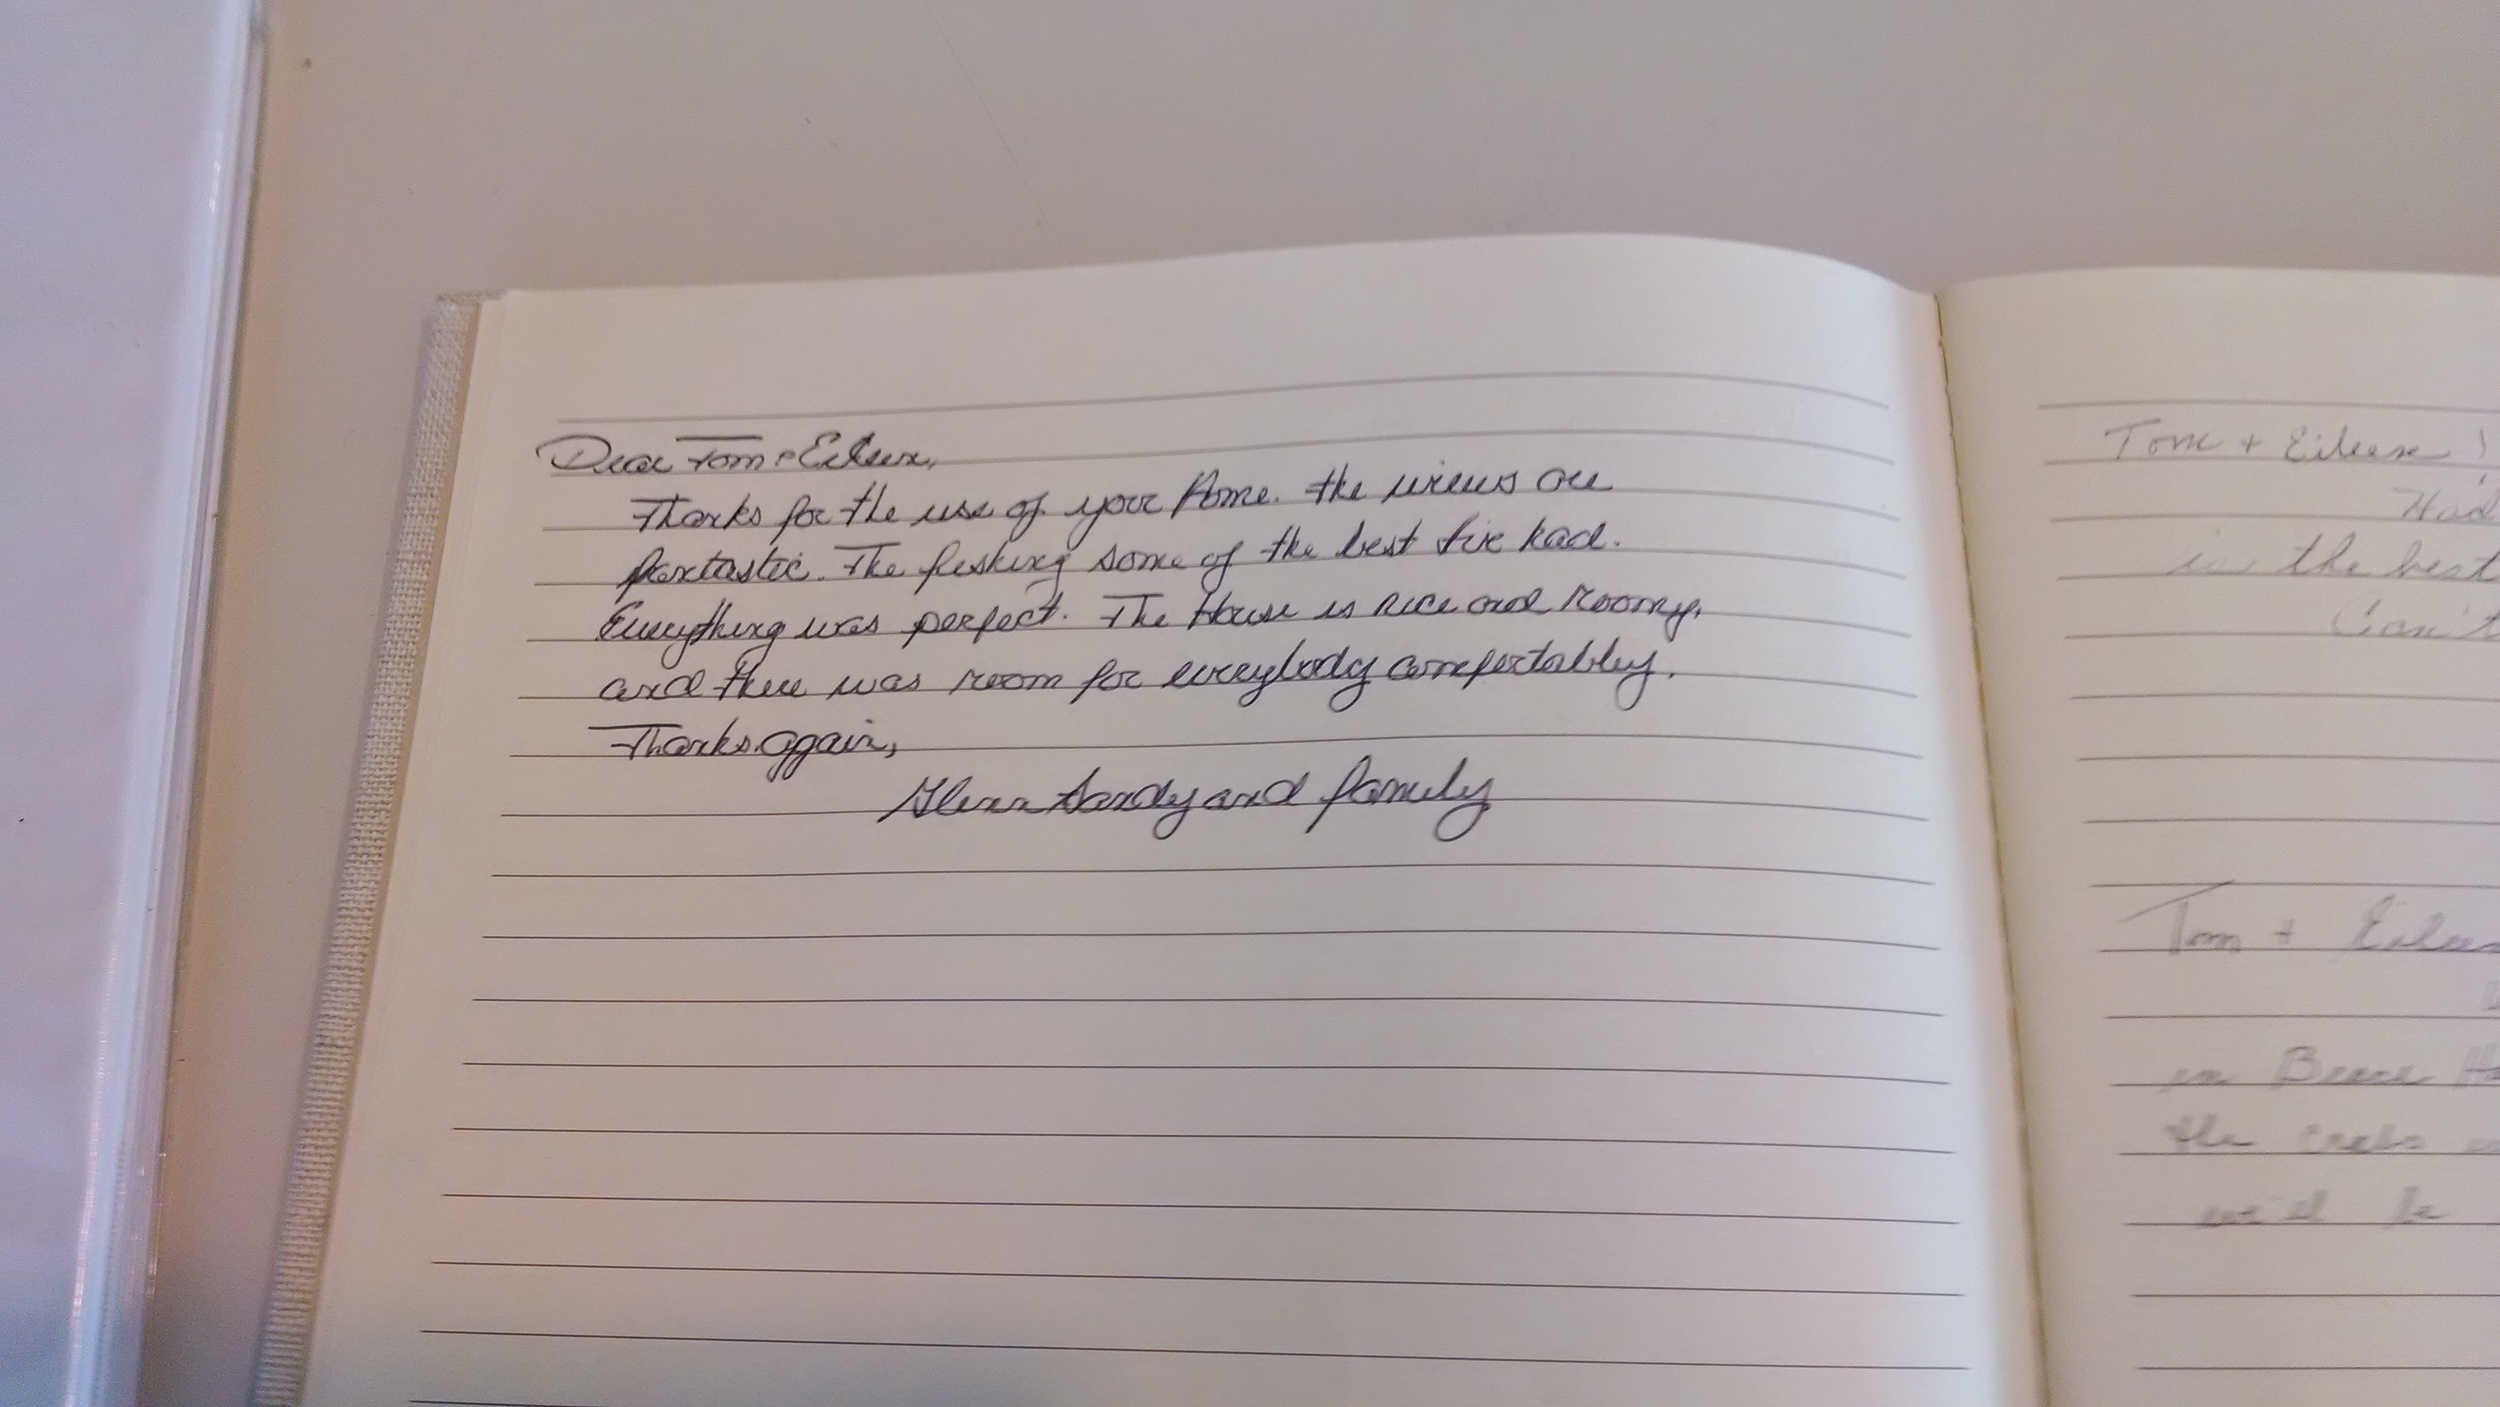 Dear Tom + Eileen,
Thanks for the use of your home. The views are
fantastic. The fishing some of the best I've had.
Everything was perfect. The House is nice and roomy,
and there was room for everybody comfortably.
Thanks again,
Glenn Sandy and family
Tom + Eileen!
Had
is the best
Can't
Tom + Eileen
in
the crabs
we'll be